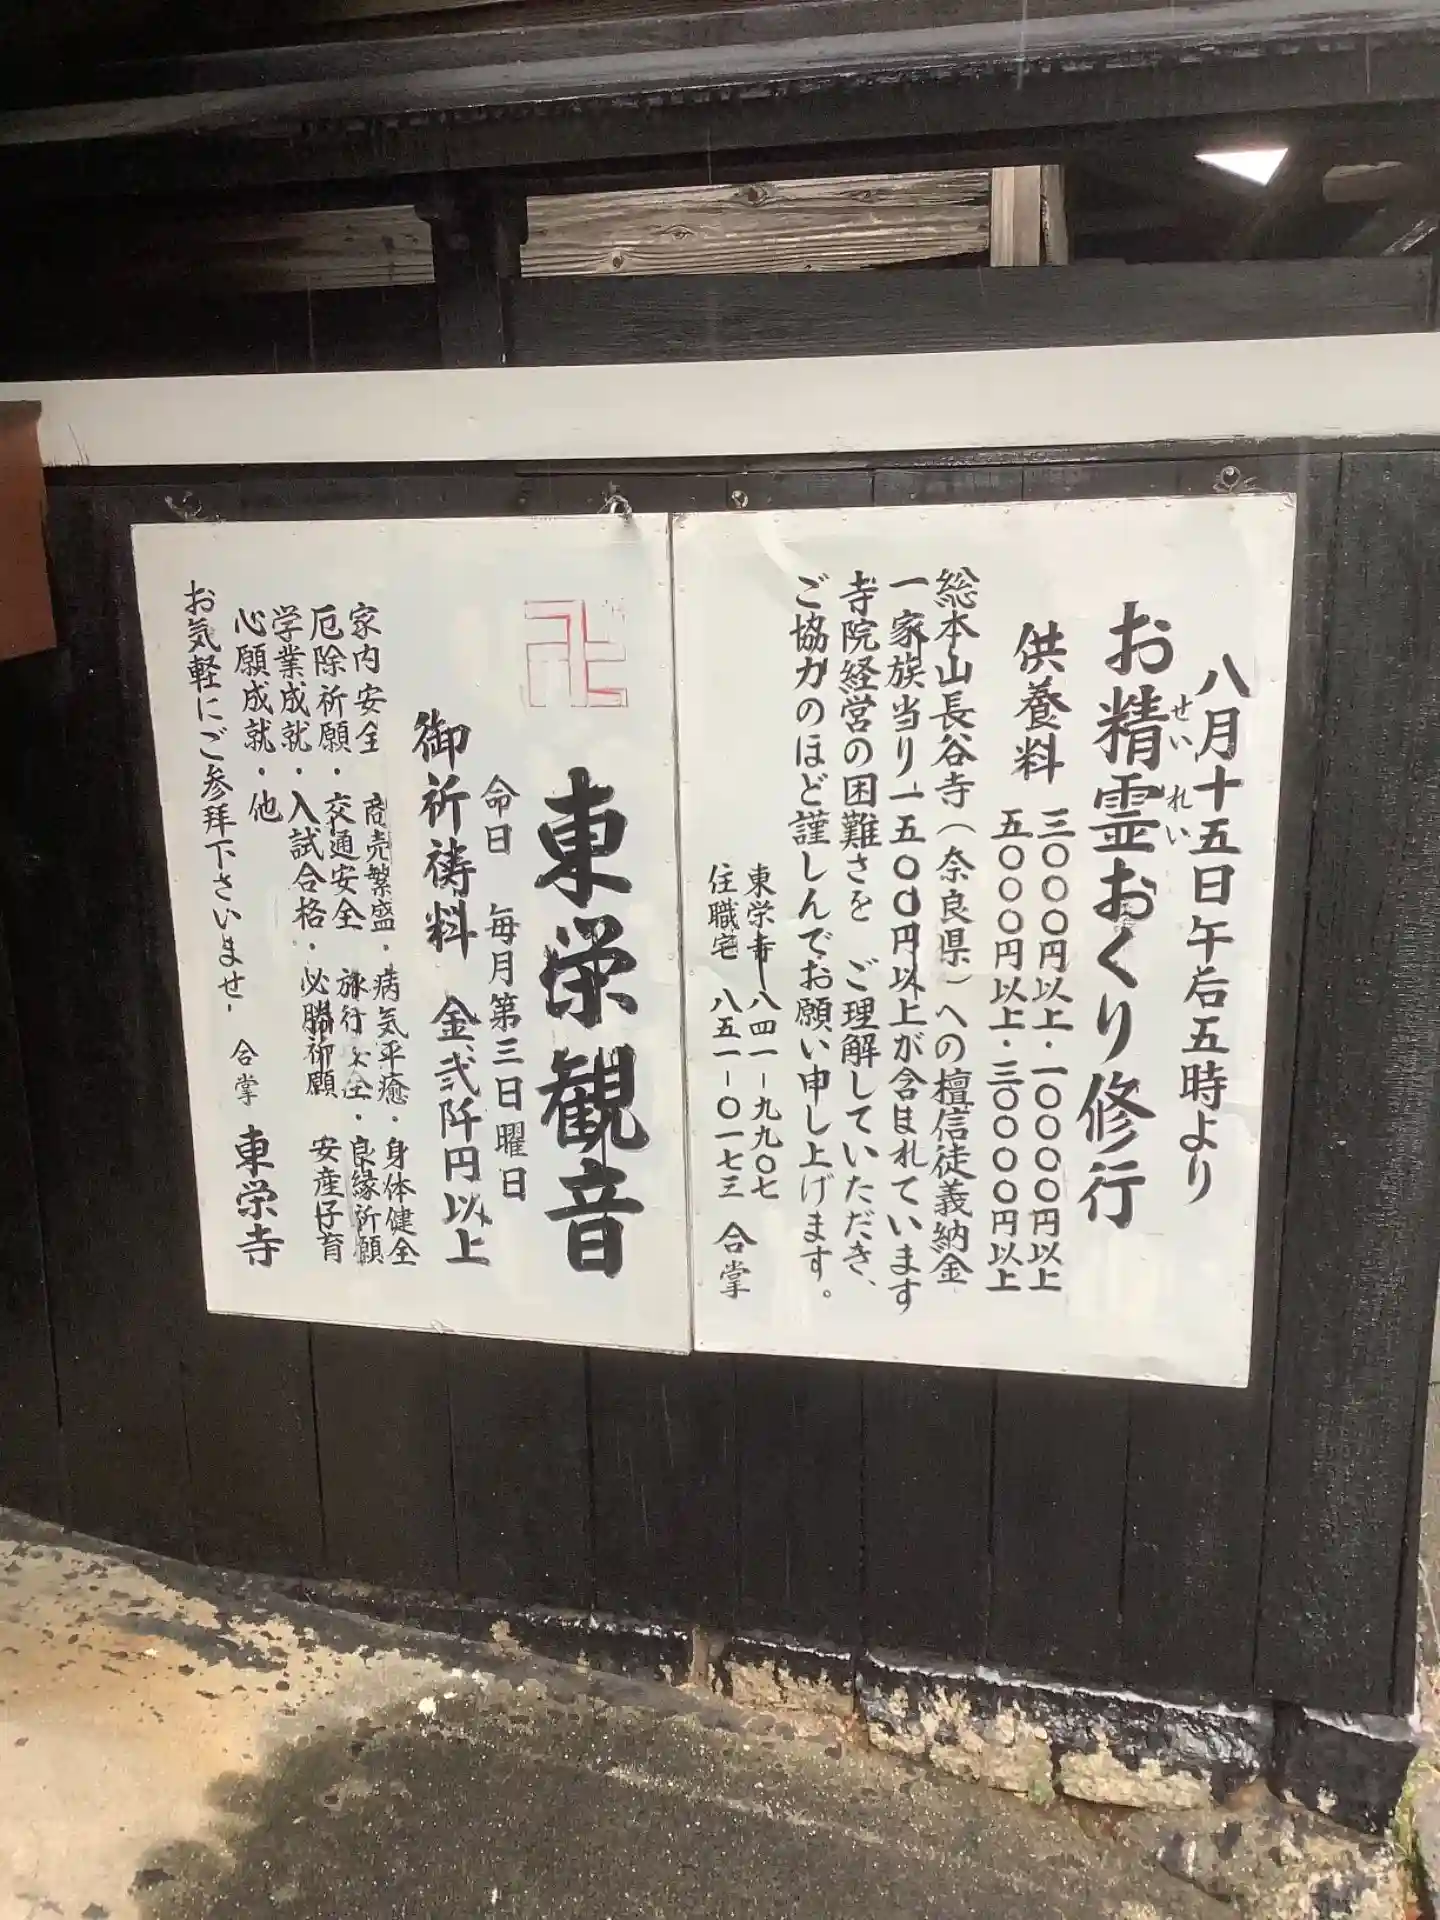 八月十五日午后五時より
お精霊おくり修行
せいれい
供養料
三〇〇〇円以上・一〇〇〇〇円以上
五〇〇〇円以上・三〇〇〇〇円以上
総本山長谷寺（奈良県）への檀信徒義納金
一家族当り一五〇〇円以上が含まれています
寺院経営の困難さを ご理解していただき、
ご協力のほど謹しんでお願い申し上げます。
東栄寺 八四一-九九〇七
住職宅 八五一-〇一七三 合掌
卍
東栄観音
命日 毎月第三日曜日
御祈祷料 金弐阡円以上
家内安全 商売繁盛・病気平癒・身体健全
厄除祈願・交通安全 旅行安全・良縁祈願
学業成就・入試合格・必勝御願 安産仔育
心願成就・他
お気軽にご参拝下さいませ・ 合掌 東栄寺